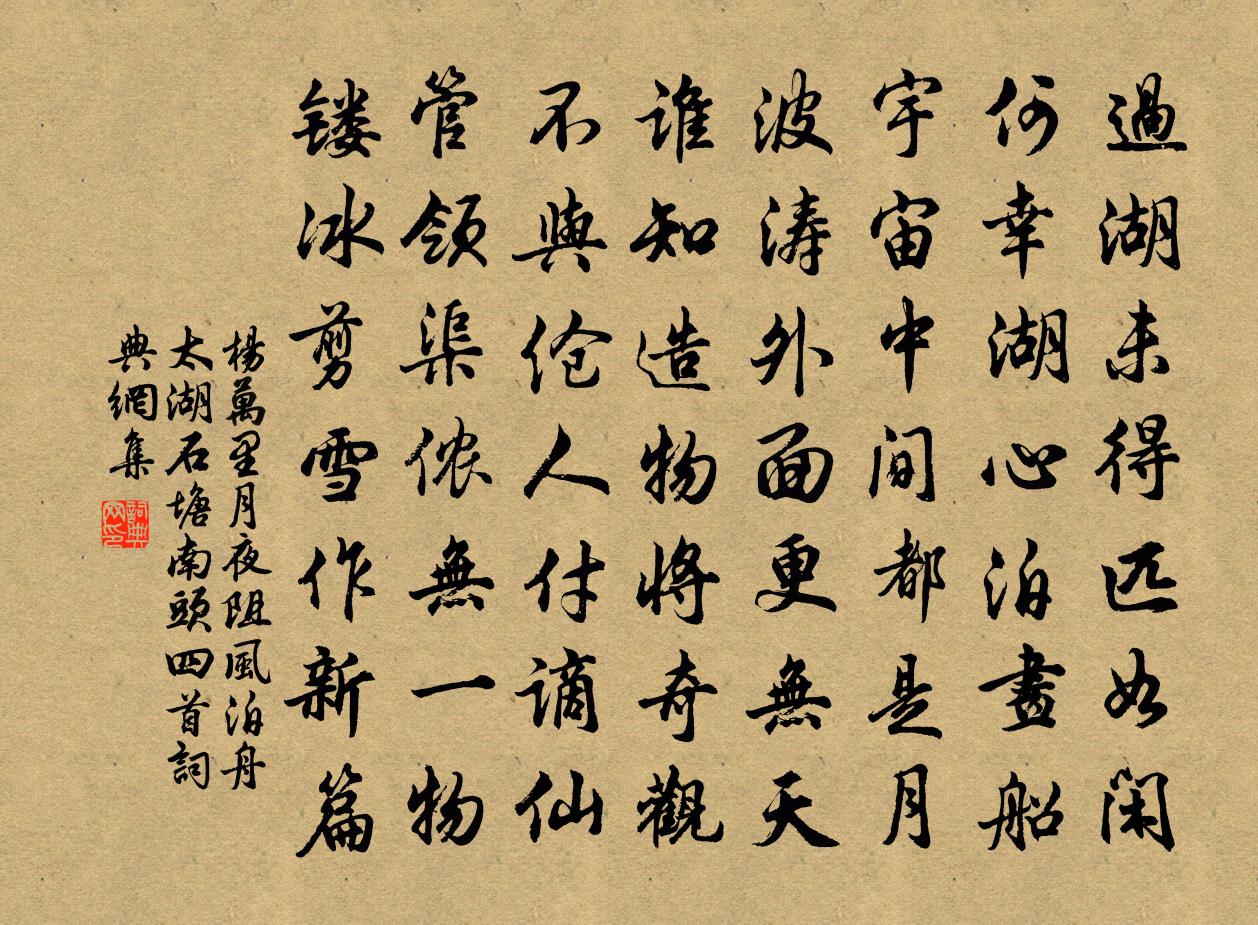 過湖未得匹如閑
何幸湖心泊畫船
宇宙中間都是月
波涛外面更無天
谁知造物將奇觀
不與伧人付谪仙
管领渠侬無一物
镂冰剪雪作新篇
楊萬里月夜阻風泊舟
太湖石塘南頭四首詞
典網集
詞典
网印